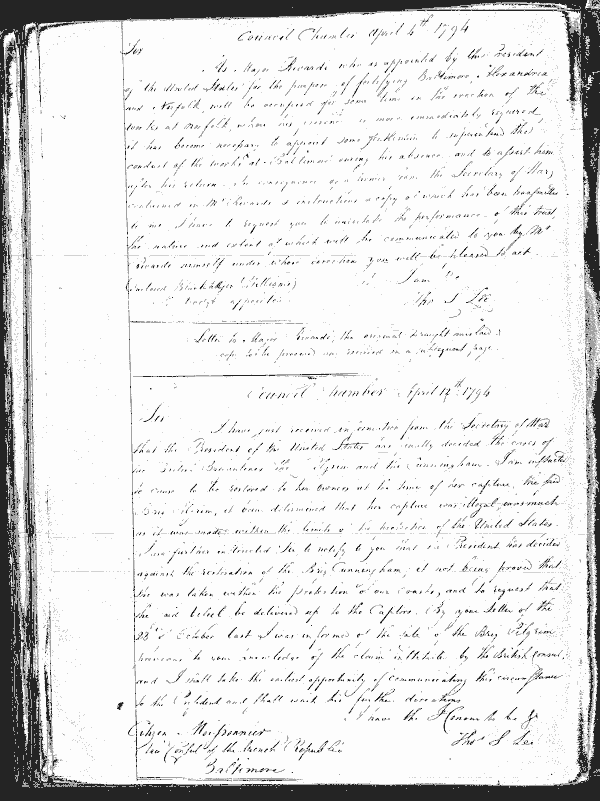 Council Chamber April 4th 1794
Sir
As Major Rivardi who is appointed by the President
of the United States for the purpose of fortifying Baltimore, Alexandria
and Norfolk, will be occupied for some time in the erection of the
works at Norfolk, where his service is more immediately required,
it has become necessary to appoint some gentleman to superintend the
conduct of the works at Baltimore during his absence, and to assist him
after his return. In consequence of a power from the Secretary of War,
contained in Mr Rivardi's instructions a copy of which has been transmitted
to me, I have to request you to undertake the performance of this trust,
the nature and extent of which will be communicated to you by Mr
Rivardi himself under whose direction you will be pleased to act.
I am &c
Tho S Lee
Letter to Major Rivardi, the original draught mislaid;
copy to be procured and received in a subsequent page.
Council Chamber April 12th 1794
Sir
I have just received information from the Secretary of War
that the President of the United States has finally decided the cases of
the British Brigantines the Pilgrim and the Cunningham. I am instructed
to cause to be restored to her owners at the time of her capture, the said
Brig Pilgrim, it being determined that her capture was illegal, inasmuch
as it was made within the limits of the protection of the United States.
I am further instructed Sir to notify to you that the President has decided
against the restoration of the Brig Cunningham, it not being proved that
she was taken within the protection of our coasts, and to request that
the said vessel be delivered up to the Captors. By your Letter of the
22d October last I was informed of the sale of the Brig Pilgrim
previous to your knowledge of the claim instituted by the British Consul,
and I shall take the earliest opportunity of communicating this circumstance
to the President and shall wait his further directions.
I have the Honour to be &c
Citizen Moissonnier
Vice Consul of the French Republic
Thos S Lee
Baltimore.